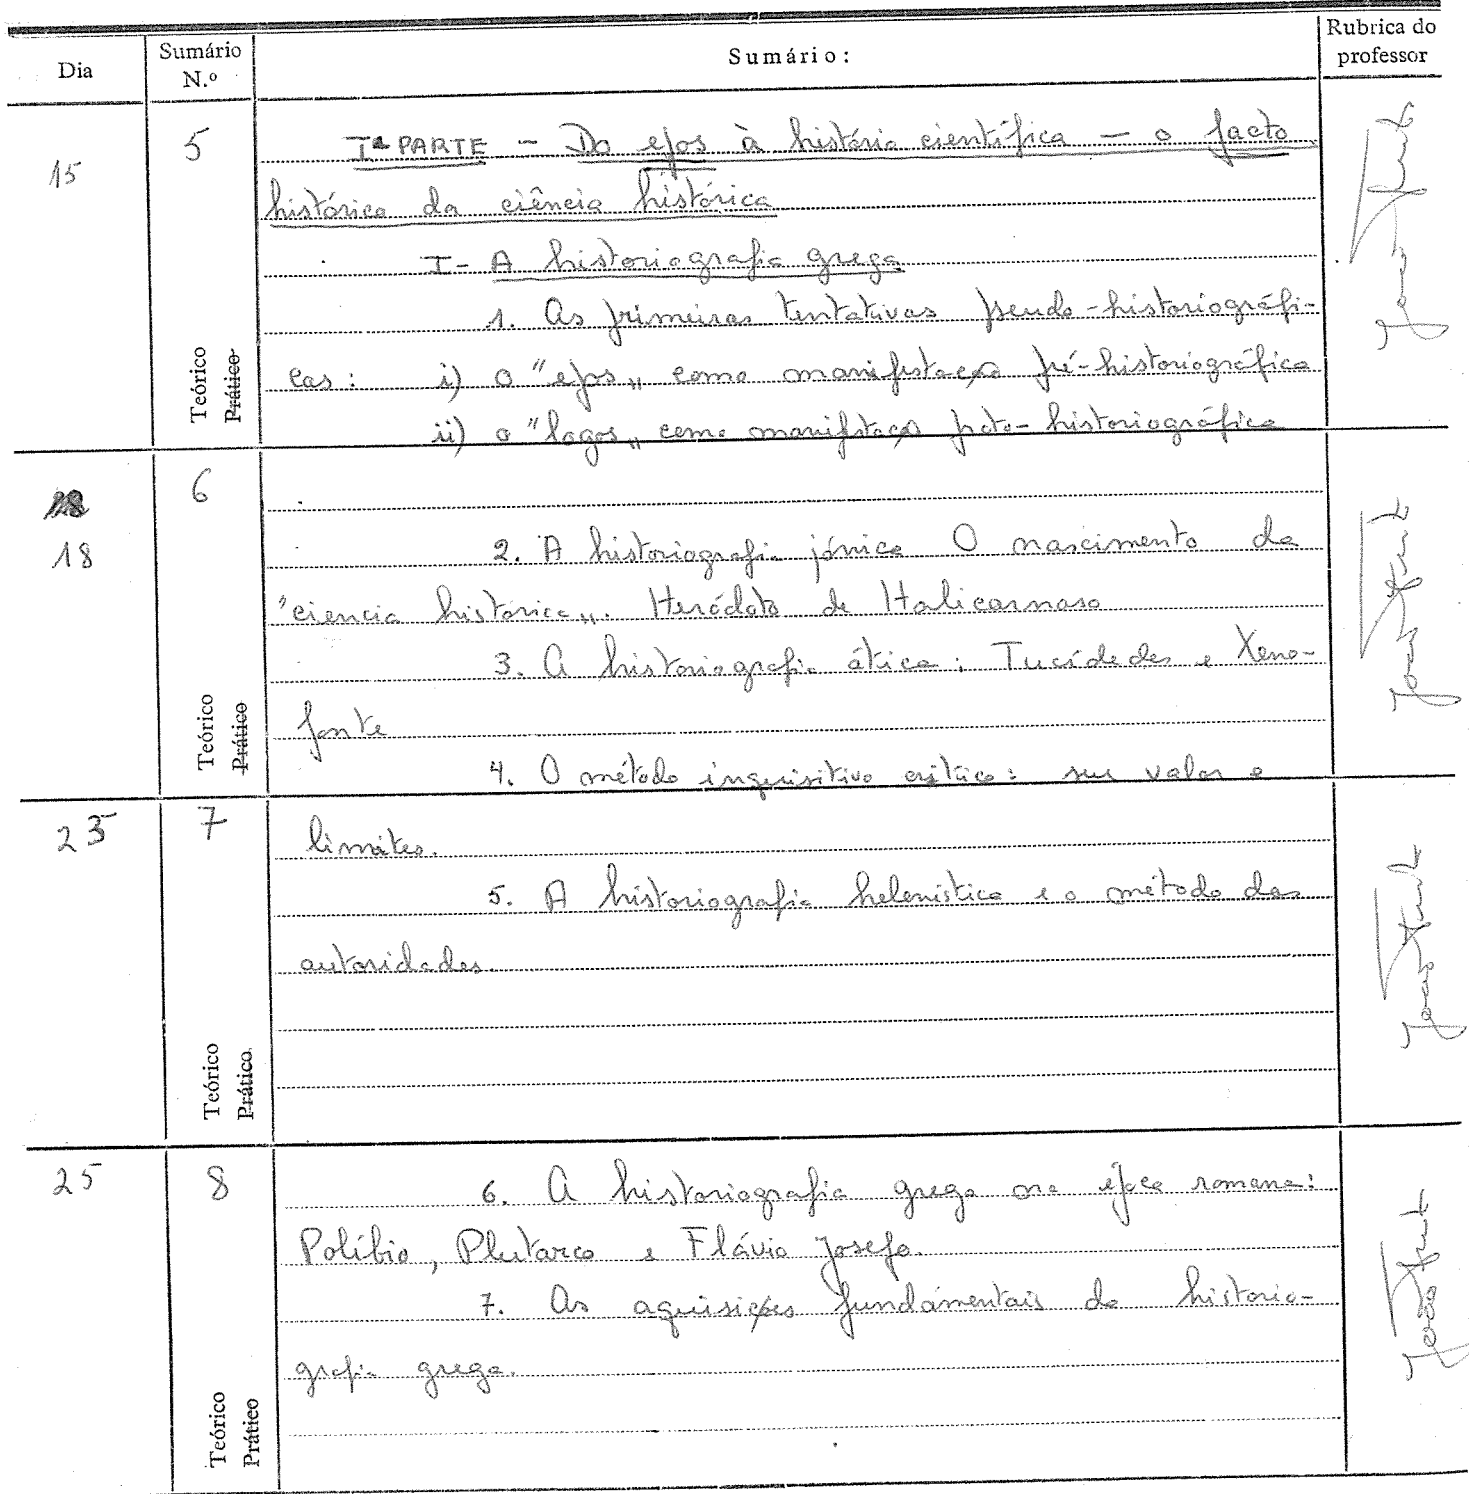 Dia
Sumário
N.º
Sumário:
Rubrica do
professor
15
5
Iª PARTE - Do epos à história científica - o facto
histórico da ciência histórica
I - A historiografia grega
1. As primeiras tentativas pseudo-historiográfi-
cas: i) o "epos„ como manifestação pré-historiográfica
ii) o "logos„ como manifstação proto-historiográfica
Teórico
Prático
18
6
2. A historiografia jónica O nascimento da
"ciencia histórica„. Heródoto de Halicarnaso
3. A historiografia ática: Tucídedes e Xeno-
fonte
4. O método inquisitivo crítico: seu valor e
Teórico
Prático
23
7
limites.
5. A historiografia helenistica e o método das
autoridades.
Teórico
Prático
25
8
6. A historiografia grega na época romana:
Políbio, Plutarco e Flávio Josefo.
7. As aquisições fundamentais da historio-
grafia grega.
Teórico
Prático